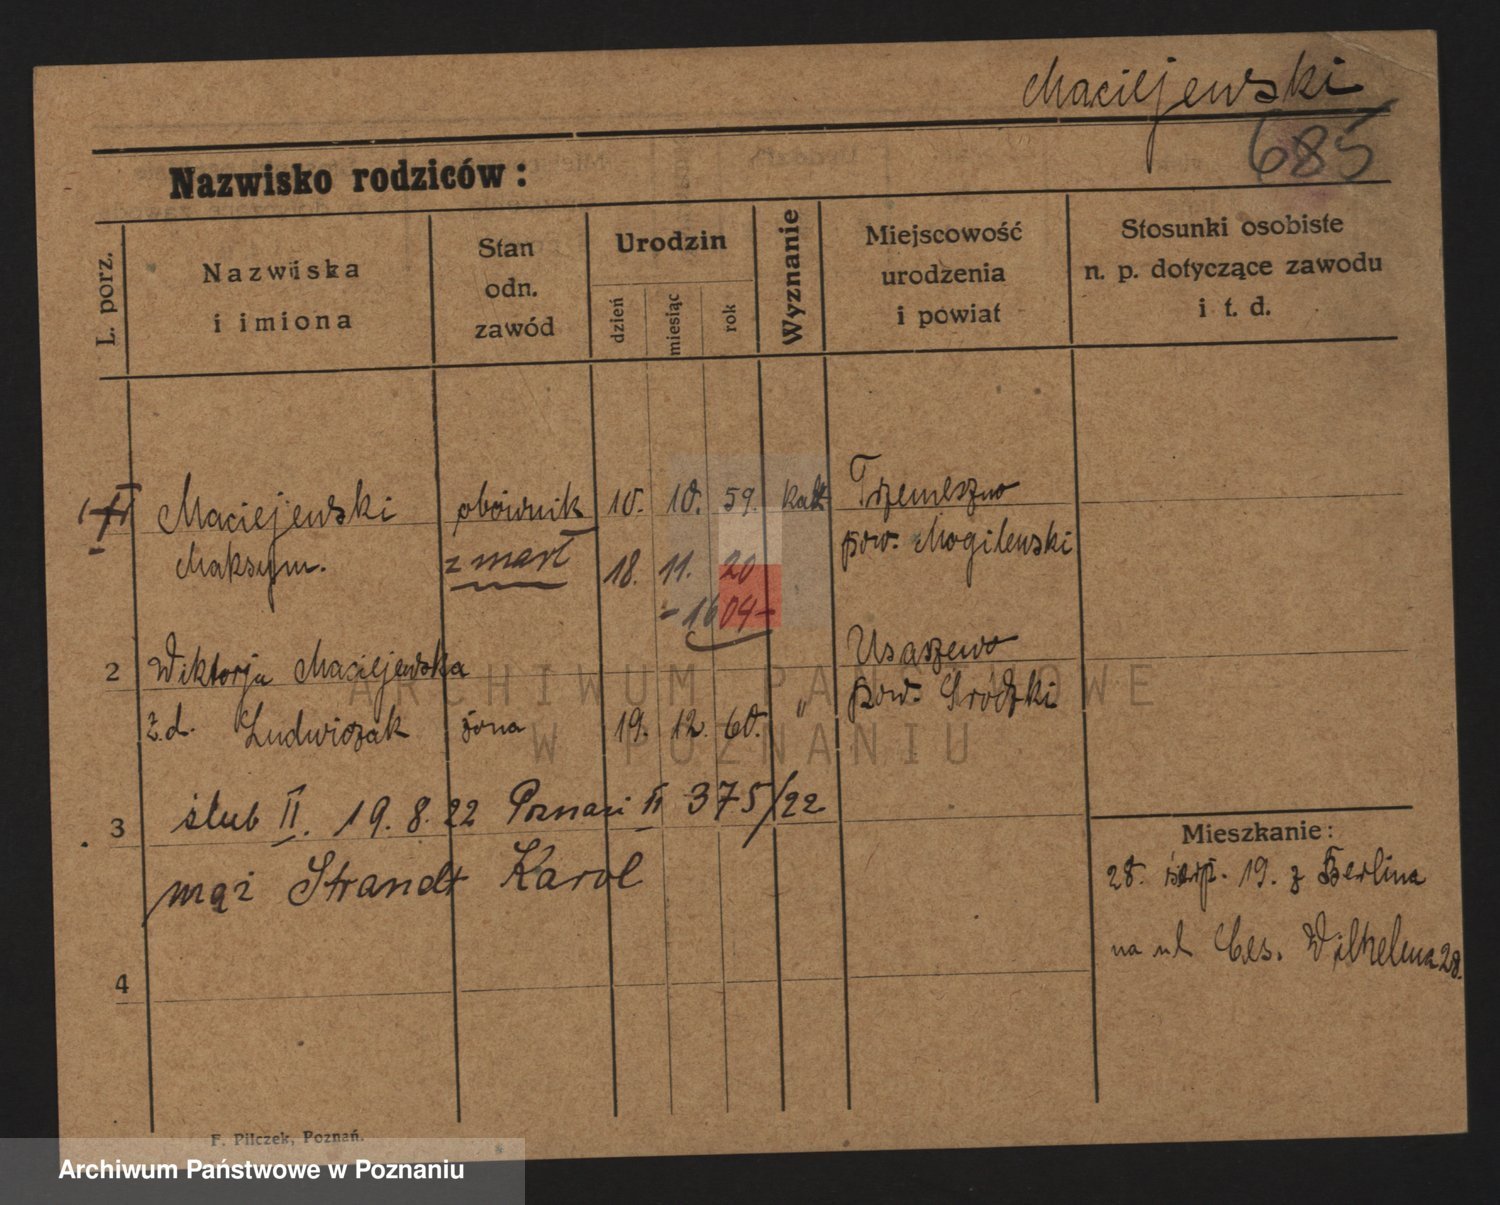 Maciejewski
685
Nazwisko rodziców:
L. porz.
Nazwiska
i imiona
Stan
odn.
zawód
Urodzin
dzień
miesiąc
rok
Wyznanie
Miejscowość
urodzenia
i powiat
Stosunki osobiste
n. p. dotyczące zawodu
i t. d.
Maciejewski obownik 10. 10. 59. kat Trzemeszno
Maksym. zmarł 18. 11. 20 pow. Mogilenski
-1604-
2 Wiktorja Maciejewska
z.d. Ludwiczak żona 19. 12. 60. " pow. Srodzki
3 ślub II. 19. 8. 22 Poznań II 375/22
mąż Strandt Karol
4
Mieszkanie:
28. sierp. 19. z Berlina
na ul Ces. Wilhelma 28.
F. Pilczek, Poznań.
ARCHIWUM PAŃSTWOWE
W POZNANIU
Archiwum Państwowe w Poznaniu